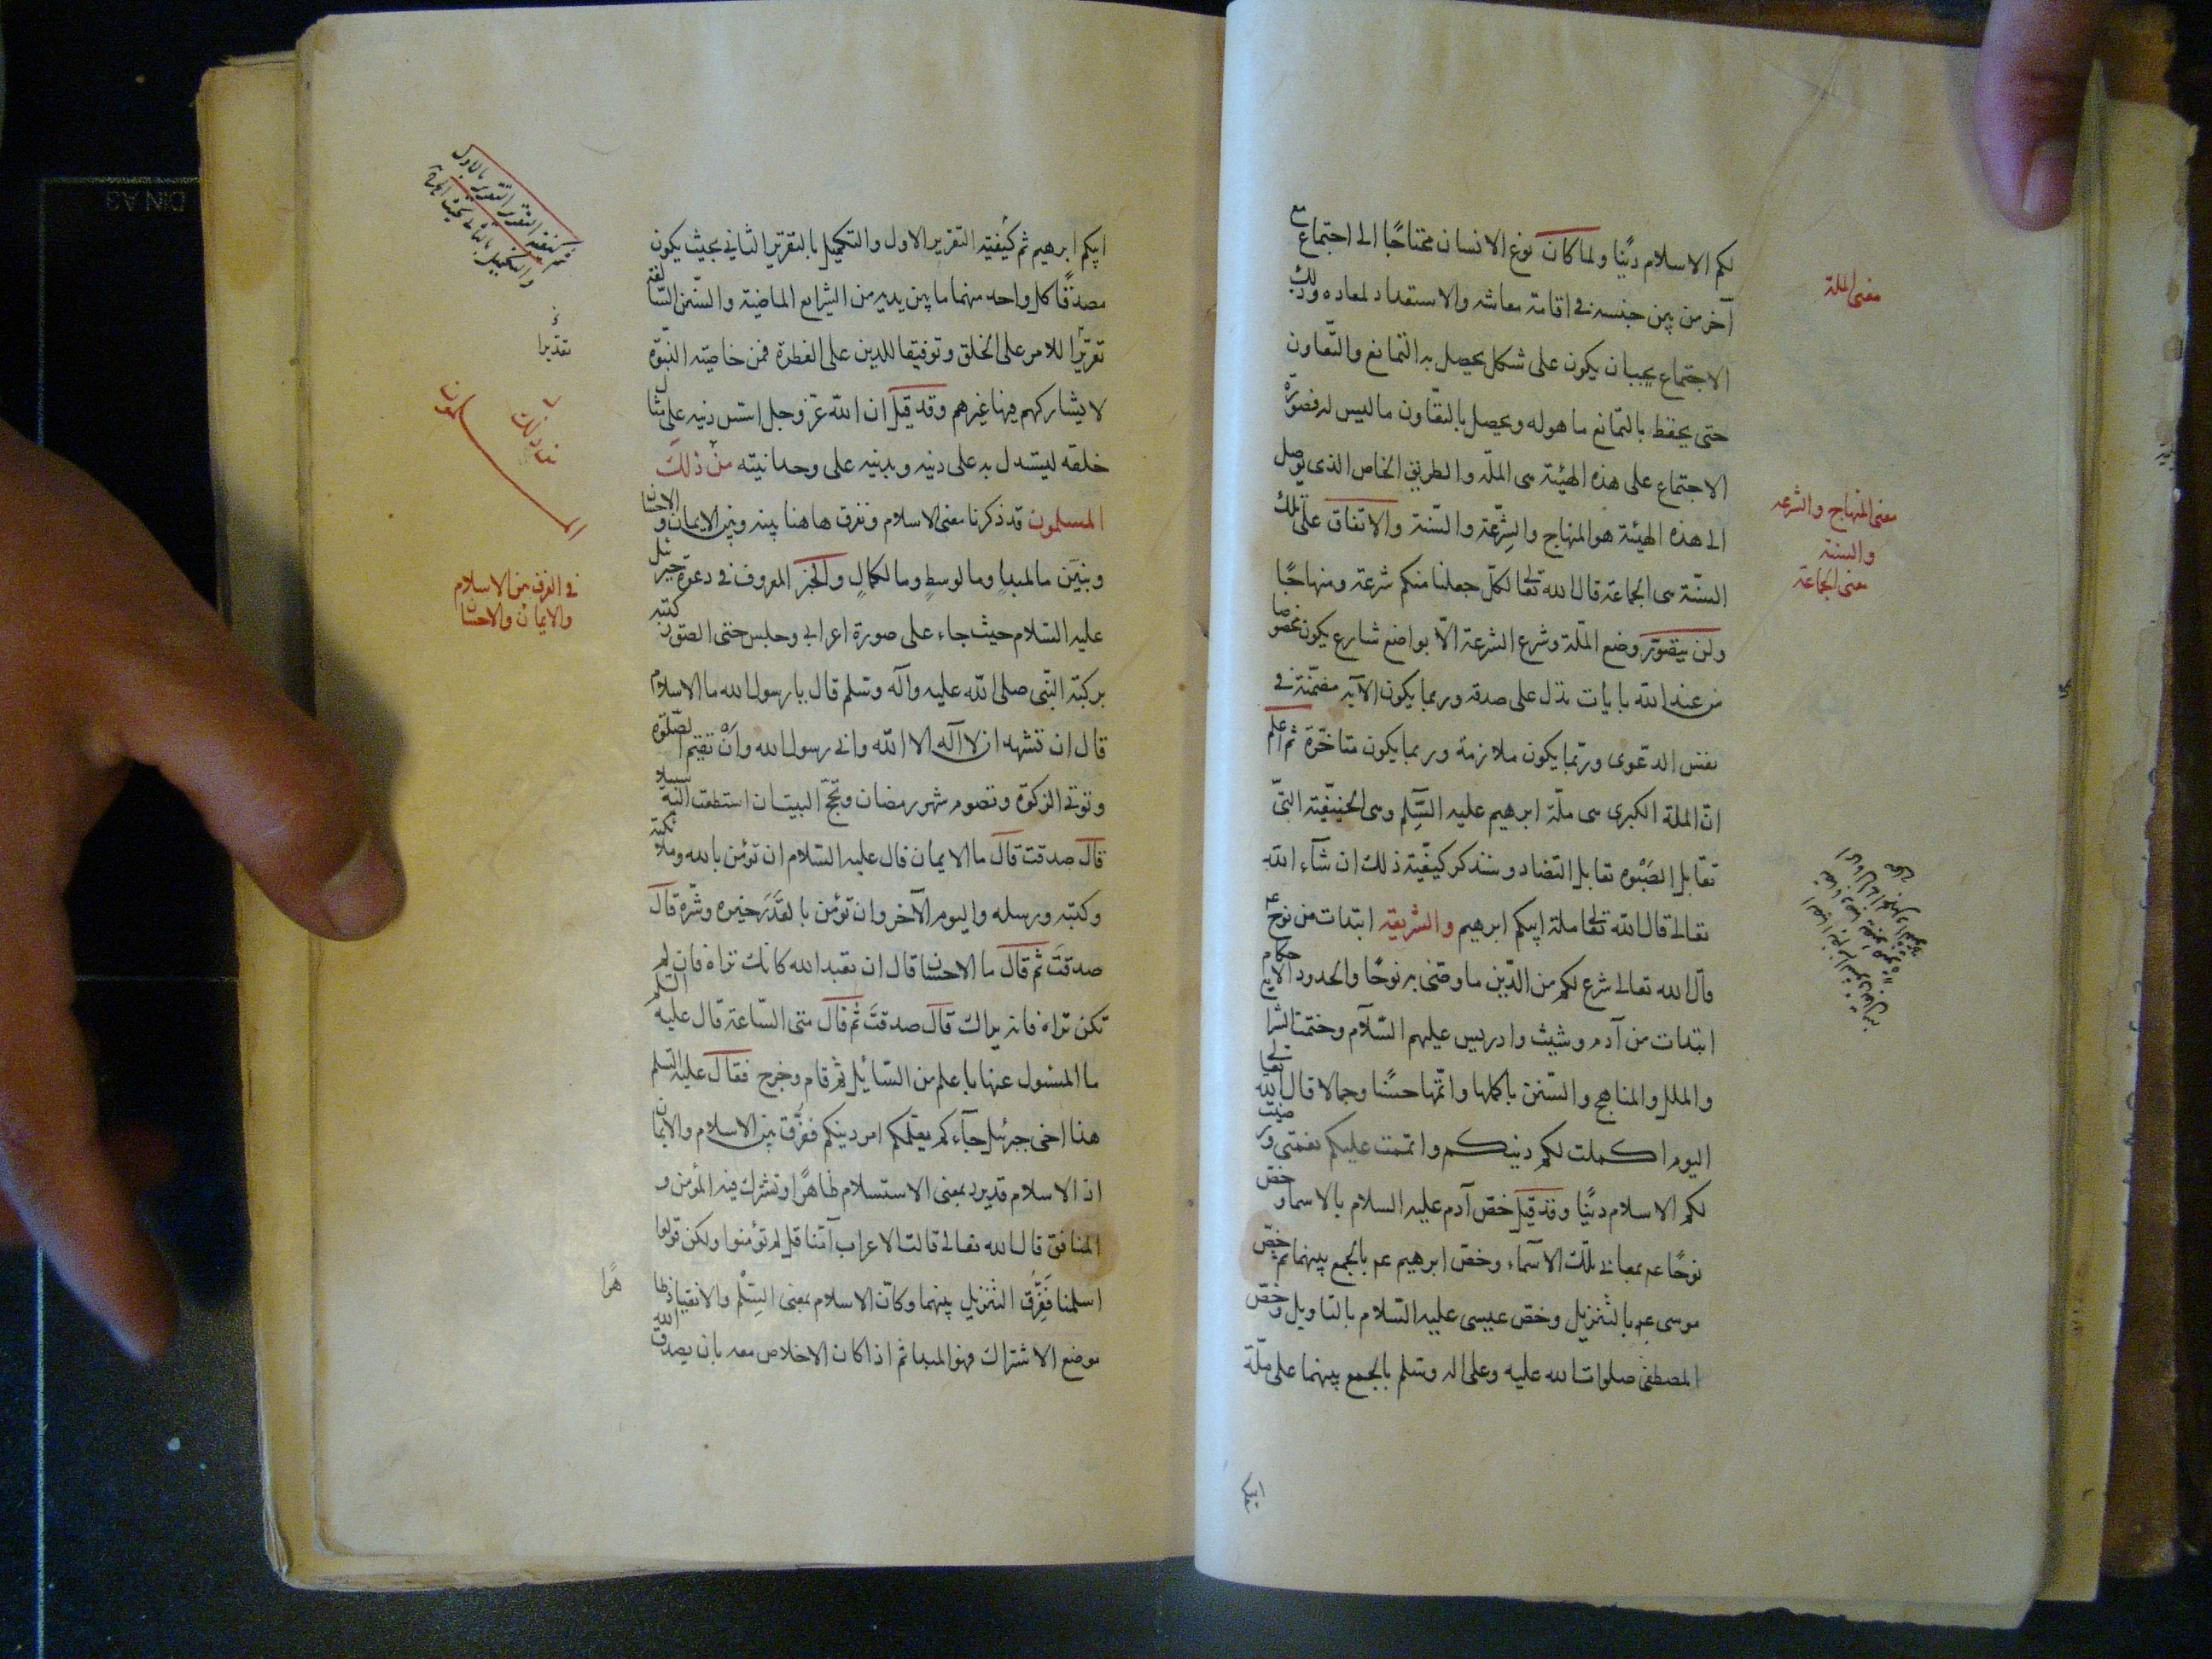 لكم الاسلام دينًا ولما كان نوع الانسان محتاجًا الى اجتماع مع
آخر من بين جنسه في اقامة معاشه والاستعداد لمعاده وذلك
الاجتماع يجب ان يكون على شكل يحصل به التمانع والتعاون
حتى يحفظ بالتمانع ما هو له ويحصل بالتعاون ما ليس له فصورة
الاجتماع على هذه الهيئة هى الملّة والطريق الخاص الذى يوصل
الى هذه الهيئة هو المنهاج والشِرعة والسّنة والاتفاق على تلك
السنّة هى الجماعة قال الله تعالى لكلّ جعلنا منكم شرعة ومنهاجًا
ولن يتصوّر وضع الملّة وشرع الشرعة الّا بواضع شارع يكون مخصوصا
من عند الله بايات تدل على صدقه وربما يكون الآية مضمّنة في
نفس الدّعوى وربّما يكون ملازمة وربما يكون متاخّرة ثم اعلم
انّ الملة الكبرى هى ملّة ابرهيم عليه السّلم وهى الحنيفيّة التىّ
تقابل الصَبْوة تقابل التضاد وسنذكر كيفيّة ذلك ان شآء الله
تعالى قال الله تعالى ملة ابيكم ابرهيم والشريعة ابتدات من نوح عم
قال الله تعالى شرع لكم من الدّين ما وصّى به نوحًا والحدود والاحكام
ابتدات من آدم وشيث وادريس عليهم السّلام وختمت الشرايع
والملل والمناهج والسّنن باكملها واتمّها حسنًا وجمالا قال الله تعالى
اليوم اكملت لكم دينكم واتممت عليكم نعمتي ورضيت
لكم الاسلام دينًا وقد قيل خصّ آدم عليه السلام بالاسما وخصّ
نوحًا عم بمعانى تلك الاسماء وخصّ ابرهيم عم بالجمع بينهما ثم خصّ
موسى عم بالتنزيل وخصّ عيسى عليه السّلام بالتاويل وخصّ
المصطفى صلوات الله عليه وعلى اله وسلم بالجمع بينهما على ملّة
معنى الملة
معنى المنهاج والشرعه
والسنة
معنى الجماعة
ابيكم ابرهيم ثم كيفية التقرير الاول والتكميل بالتقرير الثاني بحيث يكون
مصدقًا كل واحد منهما ما بين يديه من الشرايع الماضية والسّنن السّالفة
تقريرًا للامر على الخلق وتوفيقا للدين على الفطرة فمن خاصيّة النبوّة
لا يشاركهم فيها غيرهم وقد قيل ان الله عزّ وجل اسّس دينه على مثال
خلقه ليستدل به على دينه وبدينه على وحدانيته من ذلك
المسلمون قد ذكرنا معنى الاسلام ونفرق هاهنا بينه وبين الايمان والاحسان
ونبيّن ما المبدا وما الوسط وما الكمال والخبر المعروف في دعوة جبرئيل
عليه السّلام حيث جاء على صورة اعرابي وجلس حتى الصق ركبته
بركبة النّبى صلى الله عليه وآله وسلم قال يا رسول الله ما الاسلام
قال ان تشهد ان لا آله الا الله واني رسول الله وانْ تقيم الصّلوة
وتوتي الزكوة وتصوم شهر رمضان وتحجّ البيت ان استطعت اليه سبيلا
قال صدقت قال ما الايمان قال عليه السّلام ان تؤمن بالله وملائكته
وكتبه ورسله واليوم الآخر وان تؤمن بالقَدَر خيره وشّره قال
صدقتَ ثم قال ما الاحسان قال ان تعبد الله كانك تراه فان لم
تكن تراه فانه يراك قال صدقتَ ثم قال متى السّاعة قال عليه السلم
ما المسئول عنها باعلم من السّايل ثم قام وخرج فقال عليه السلم
هذا اخى جبرئيل جآءكم يعلّمكم امر دينكم ففرّق بين الاسلام والايمان
اذ الاسلام قد يرد بمعنى الاستسلام ظاهرًا وتشترك فيه المؤمن و
المنافق قال الله تعالى قالت الاعراب آمنا قل لم تؤمنوا ولكن قولوا
اسلمنا فَفرّق التنزيل بينهما وكان الاسلام بمعنى السِلْم والانقياد ظا
هرًا
موضع الاشتراك فهو المبدا ثم اذا كان الاخلاص معه بان يصدق الله
في الفرق بين الاسلام
والايمان والاحسان